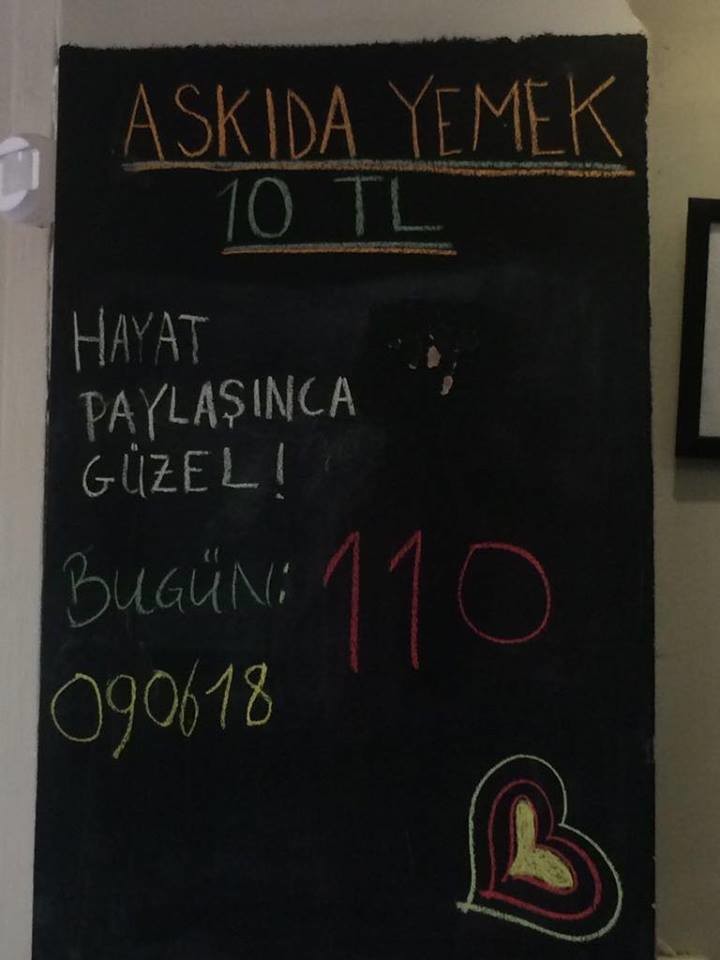 ASKIDA YEMEK
10 TL
HAYAT
PAYLAŞINCA
GÜZEL!
BUGÜN: 110
090618